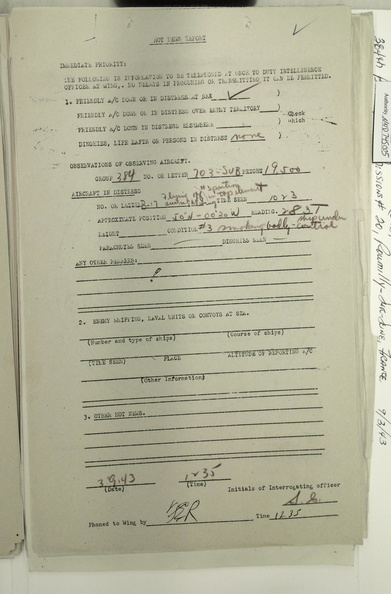 HOT NEWS REPORT
IMMEDIATE PRIORITY:
THE FOLLOWING IS INFORMATION TO BE TELEPHONED AT ONCE TO DUTY INTELLIGENCE
OFFICER AT WING. NO DELAYS IN PROCURING OR TRANSMITTING IT CAN BE PERMITTED.
1. FRIENDLY A/C DOWN OR IN DISTRESS AT SEA ✓ )
FRIENDLY A/C DOWN OR IN DISTRESS OVER ENEMY TERRITORY ) Check
FRIENDLY A/C DOWN IN DISTRESS ELSEWHERE ) which
DINGHIES, LIFE RAFTS OR PERSONS IN DISTRESS none )
OBSERVATIONS OF OBSERVING AIRCRAFT.
GROUP 384 NO. OR LETTER 703-SUB HEIGHT 19,500
AIRCRAFT IN DISTRESS
NO. OR LETTER B-17 TIME SEEN 1023
APPROXIMATE POSITION 50°N-0020W HEADING 285T
HEIGHT CONDITION #3 smoking badly- ship under control
PARACHUTES SEEN DINGHIES SEEN
ANY OTHER REMARKS:
2. ENEMY SHIPPING, NAVAL UNITS OR CONVOYS AT SEA.
(Number and type of ships) (Course of ships)
(TIME SEEN) PLACE ALTITUDE OF REPORTING A/C
(Other Information)
3. OTHER HOT NEWS.
3.9.43 1235
(Date) (Time) Initials of Interrogating officer
Phoned to Wing by Time 1235
9/3/43